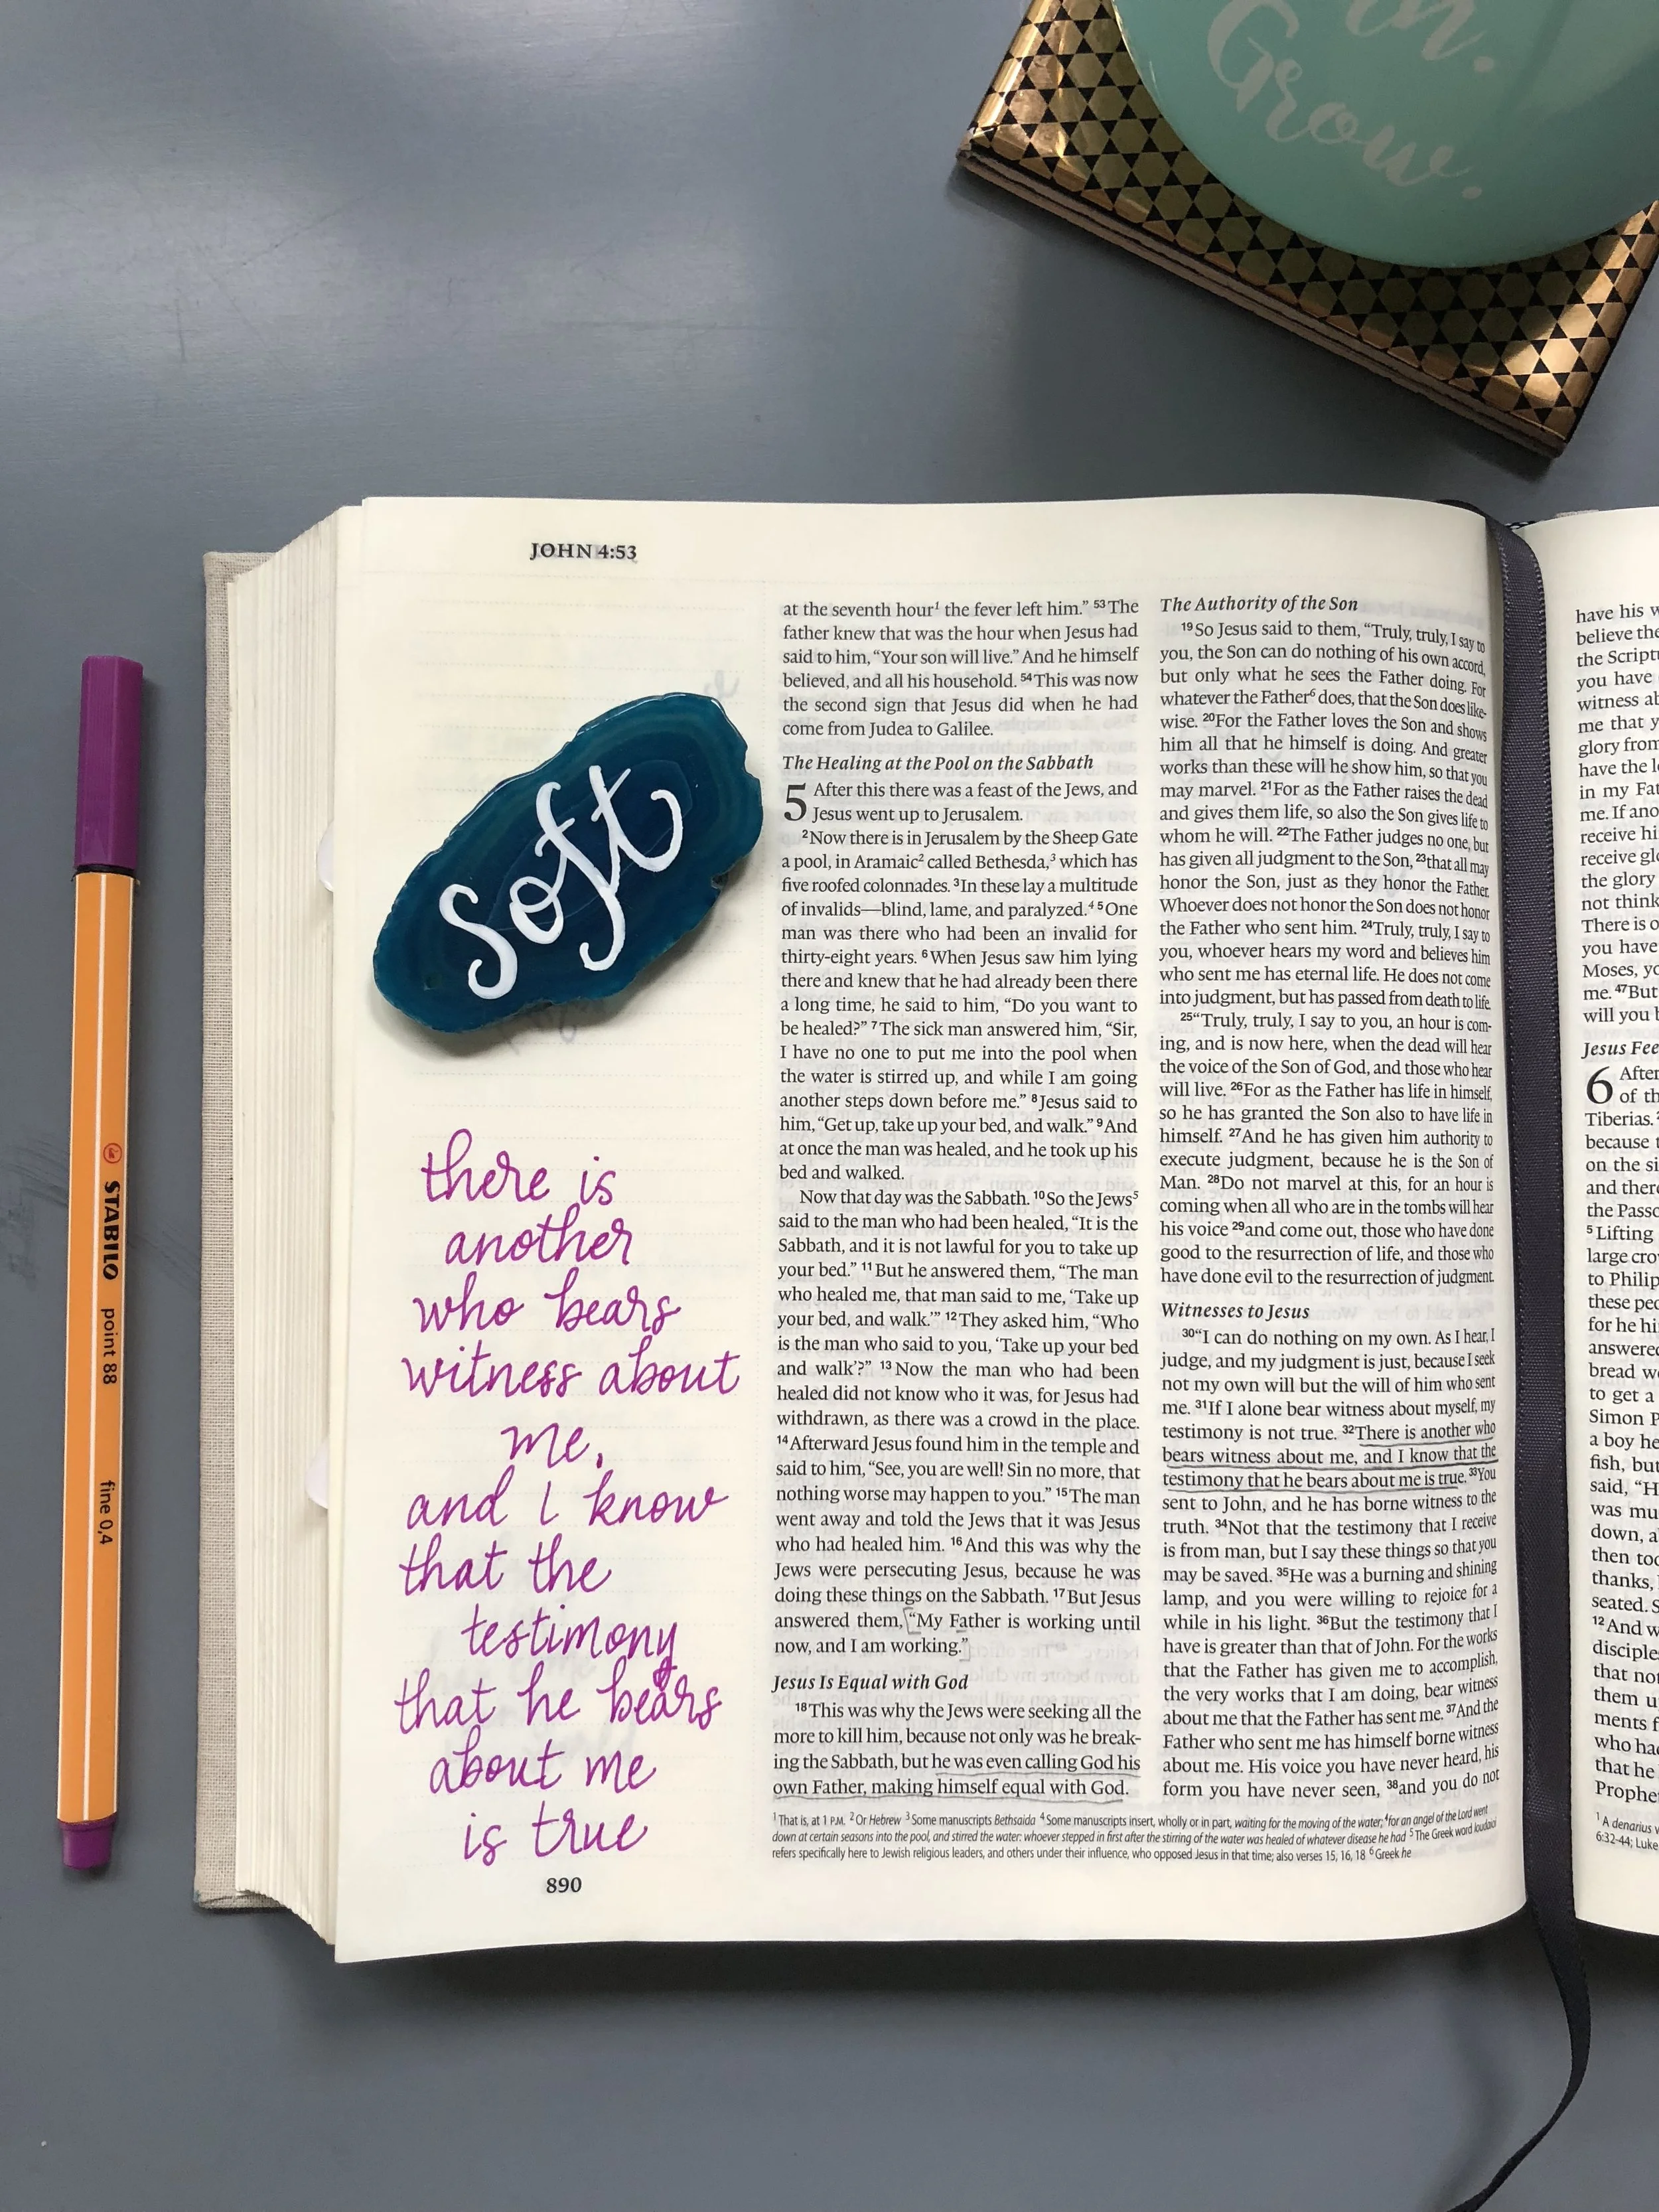 in.
Grow.
JOHN 4:53
Soft
there is
another
who bears
witness about
me,
and I know
that the
testimony
that he bears
about me
is true
890
STABILO point 88 fine 0,4
at the seventh hour¹ the fever left him.” ⁵³The
father knew that was the hour when Jesus had
said to him, “Your son will live.” And he himself
believed, and all his household. ⁵⁴This was now
the second sign that Jesus did when he had
come from Judea to Galilee.
The Healing at the Pool on the Sabbath
5 After this there was a feast of the Jews, and
Jesus went up to Jerusalem.
²Now there is in Jerusalem by the Sheep Gate
a pool, in Aramaic² called Bethesda,³ which has
five roofed colonnades. ³In these lay a multitude
of invalids—blind, lame, and paralyzed.⁴ ⁵One
man was there who had been an invalid for
thirty-eight years. ⁶When Jesus saw him lying
there and knew that he had already been there
a long time, he said to him, “Do you want to
be healed?” ⁷The sick man answered him, “Sir,
I have no one to put me into the pool when
the water is stirred up, and while I am going
another steps down before me.” ⁸Jesus said to
him, “Get up, take up your bed, and walk.” ⁹And
at once the man was healed, and he took up his
bed and walked.
Now that day was the Sabbath. ¹⁰So the Jews⁵
said to the man who had been healed, “It is the
Sabbath, and it is not lawful for you to take up
your bed.” ¹¹But he answered them, “The man
who healed me, that man said to me, ‘Take up
your bed, and walk.’” ¹²They asked him, “Who
is the man who said to you, ‘Take up your bed
and walk’?” ¹³Now the man who had been
healed did not know who it was, for Jesus had
withdrawn, as there was a crowd in the place.
¹⁴Afterward Jesus found him in the temple and
said to him, “See, you are well! Sin no more, that
nothing worse may happen to you.” ¹⁵The man
went away and told the Jews that it was Jesus
who had healed him. ¹⁶And this was why the
Jews were persecuting Jesus, because he was
doing these things on the Sabbath. ¹⁷But Jesus
answered them, “My Father is working until
now, and I am working.”
Jesus Is Equal with God
¹⁸This was why the Jews were seeking all the
more to kill him, because not only was he break-
ing the Sabbath, but he was even calling God his
own Father, making himself equal with God.
The Authority of the Son
¹⁹So Jesus said to them, “Truly, truly, I say to
you, the Son can do nothing of his own accord,
but only what he sees the Father doing. For
whatever the Father⁶ does, that the Son does like-
wise. ²⁰For the Father loves the Son and shows
him all that he himself is doing. And greater
works than these will he show him, so that you
may marvel. ²¹For as the Father raises the dead
and gives them life, so also the Son gives life to
whom he will. ²²The Father judges no one, but
has given all judgment to the Son, ²³that all may
honor the Son, just as they honor the Father.
Whoever does not honor the Son does not honor
the Father who sent him. ²⁴Truly, truly, I say to
you, whoever hears my word and believes him
who sent me has eternal life. He does not come
into judgment, but has passed from death to life.
²⁵“Truly, truly, I say to you, an hour is com-
ing, and is now here, when the dead will hear
the voice of the Son of God, and those who hear
will live. ²⁶For as the Father has life in himself,
so he has granted the Son also to have life in
himself. ²⁷And he has given him authority to
execute judgment, because he is the Son of
Man. ²⁸Do not marvel at this, for an hour is
coming when all who are in the tombs will hear
his voice ²⁹and come out, those who have done
good to the resurrection of life, and those who
have done evil to the resurrection of judgment.
Witnesses to Jesus
³⁰“I can do nothing on my own. As I hear, I
judge, and my judgment is just, because I seek
not my own will but the will of him who sent
me. ³¹If I alone bear witness about myself, my
testimony is not true. ³²There is another who
bears witness about me, and I know that the
testimony that he bears about me is true. ³³You
sent to John, and he has borne witness to the
truth. ³⁴Not that the testimony that I receive
is from man, but I say these things so that you
may be saved. ³⁵He was a burning and shining
lamp, and you were willing to rejoice for a
while in his light. ³⁶But the testimony that I
have is greater than that of John. For the works
that the Father has given me to accomplish,
the very works that I am doing, bear witness
about me that the Father has sent me. ³⁷And the
Father who sent me has himself borne witness
about me. His voice you have never heard, his
form you have never seen, ³⁸and you do not
¹ That is, at 1 P.M. ² Or Hebrew ³ Some manuscripts Bethsaida ⁴ Some manuscripts insert, wholly or in part, waiting for the moving of the water; ⁴for an angel of the Lord went
down at certain seasons into the pool, and stirred the water: whoever stepped in first after the stirring of the water was healed of whatever disease he had ⁵ The Greek word Ioudaioi
refers specifically here to Jewish religious leaders, and others under their influence, who opposed Jesus in that time; also verses 15, 16, 18 ⁶ Greek he
have his
believe the
the
you have
witness
me that
glory from
have the
in my
me. If
receive
receive
the glory
not think
There is
you have
Moses,
me. ⁴⁷But
will you
Jesus
6 After
of
Tiberias.
because
on the
and there
the
⁵Lifting
large
to Philip
these
for he
answered
bread
to get a
Simon
a boy
fish, but
said,
was
down,
then
thanks,
seated.
¹²And
disciples
that
them
who had
that he
¹ A denarius
6:32-44; Luke